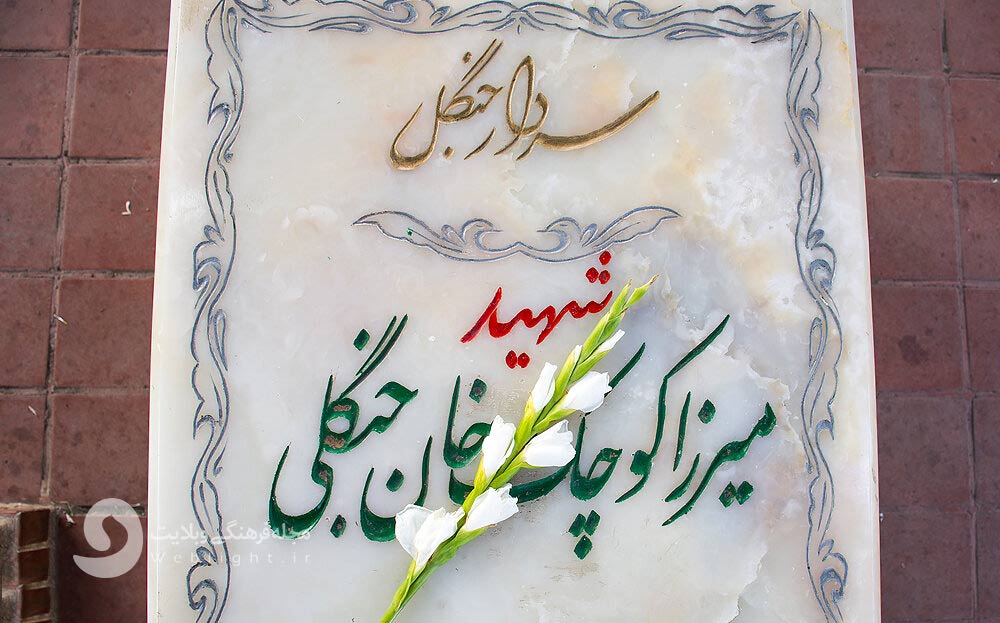 سردار جنگل
شهید
میرزا کوچک خان جنگلی
مجله فرهنگی وبلایت
Weblight.ir